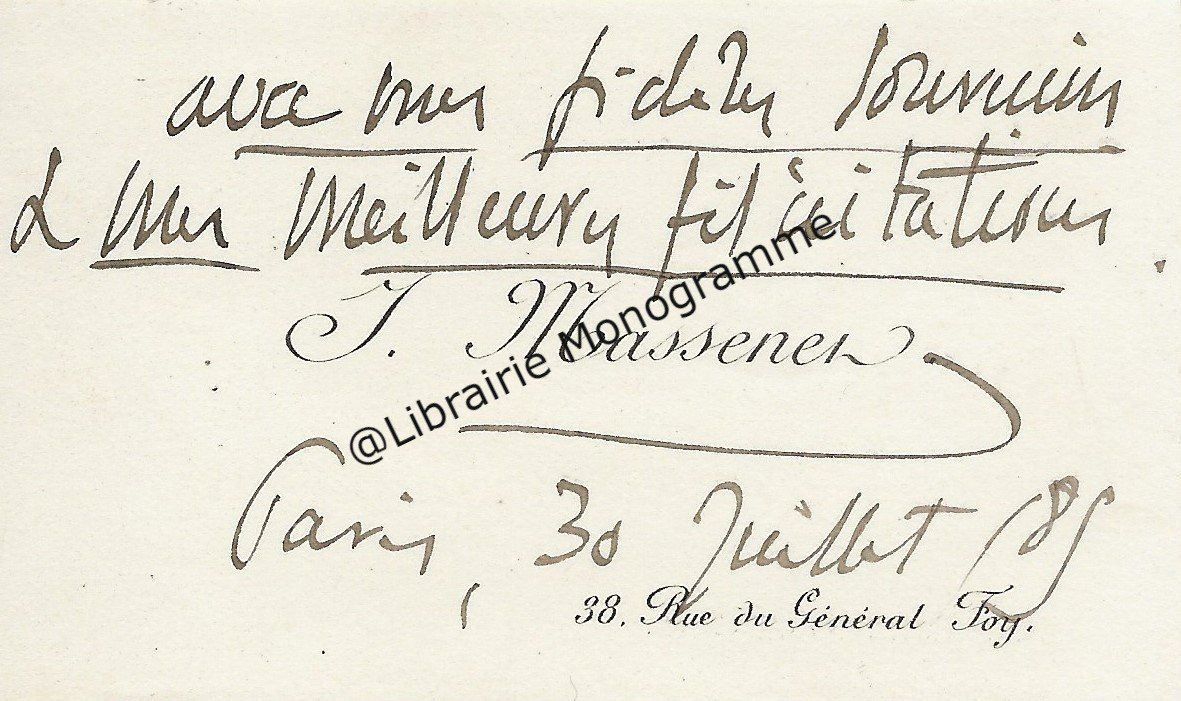 avec mes fidèles souvenirs
& mes meilleures félicitations
J. Massenet
@Librairie Monogramme
Paris, 30 Juillet 85
38. Rue du Général Foy.